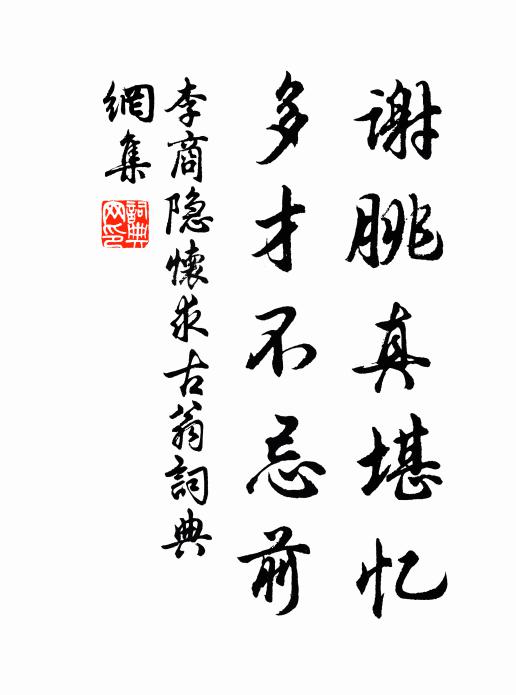 谢朓真堪忆
多才不忌前
李商隐懷求古翁詞典
網集
詞典网印